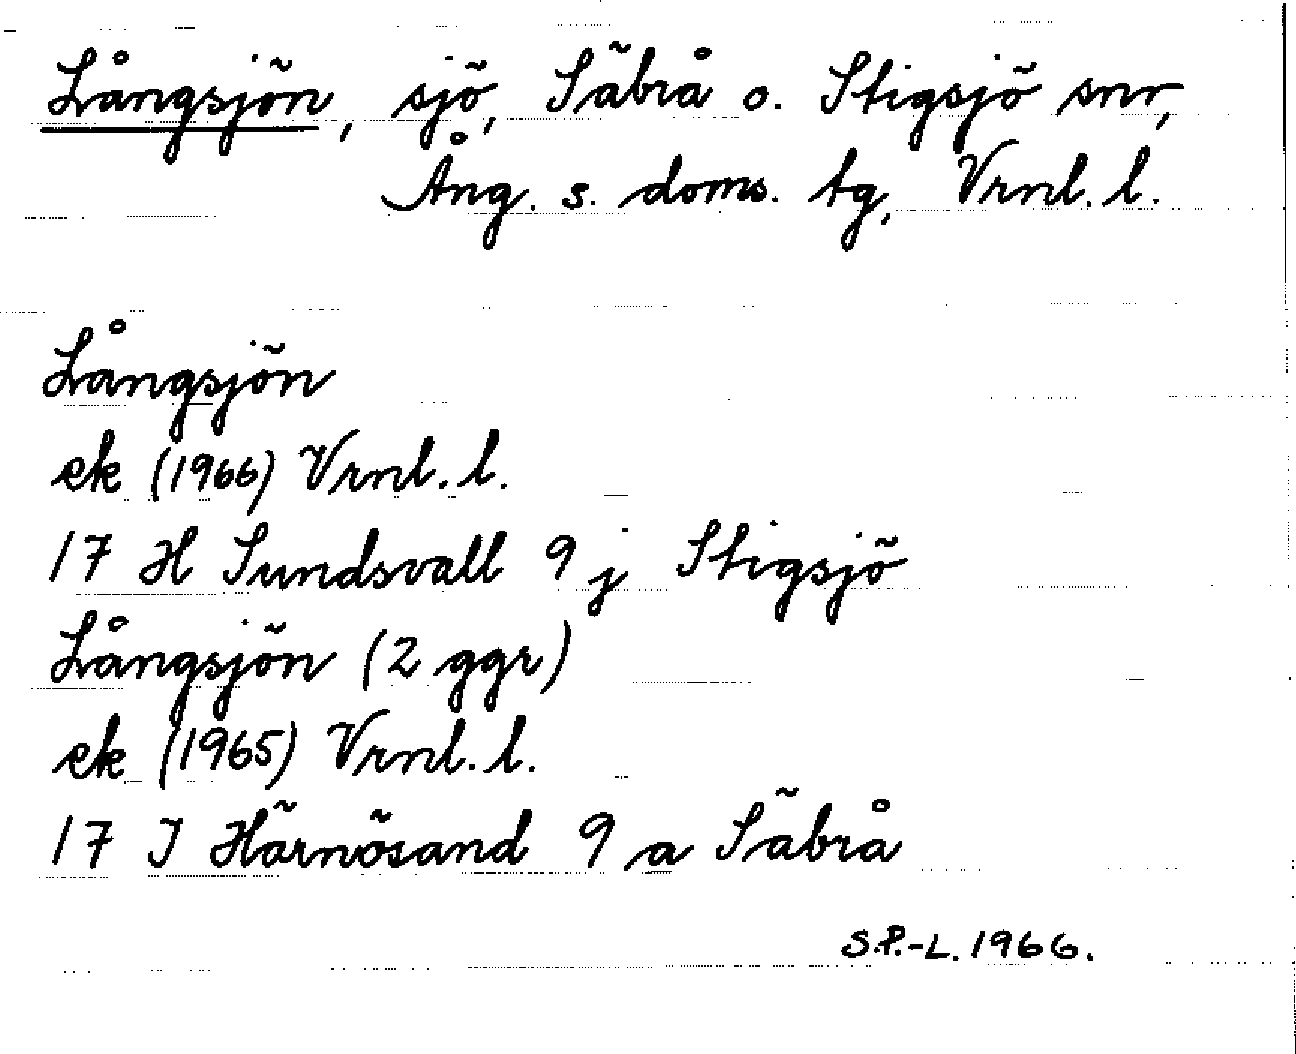 Långsjön, sjö, Säbrå o. Stigsjö snr,
Ång. s. doms. tg, Vrnl. l.
Långsjön
ek (1966) Vrnl. l.
17 H Sundsvall 9 j Stigsjö
Långsjön (2 ggr)
ek (1965) Vrnl. l.
17 I Härnösand 9 a Säbrå
S.P.-L. 1966.